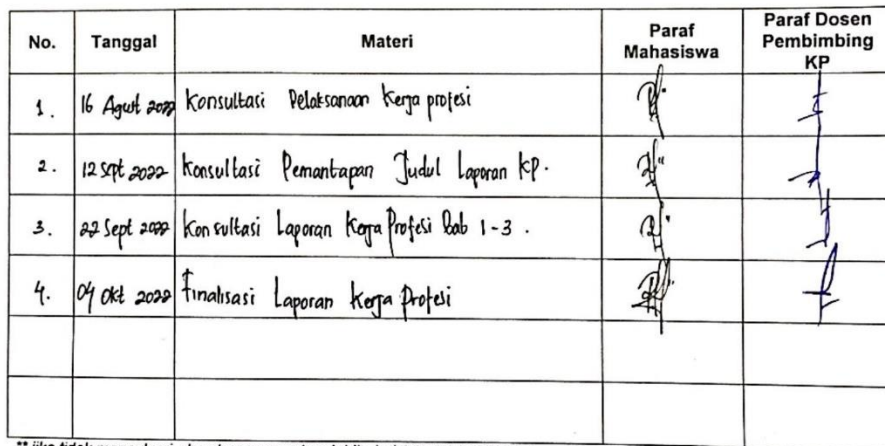 No. Tanggal Materi Paraf Mahasiswa Paraf Dosen Pembimbing KP
1. 16 Agust 2022 Konsultasi Pelaksanaan Kerja profesi
2. 12 Sept 2022 Konsultasi Pemantapan Judul Laporan KP.
3. 22 Sept 2022 Konsultasi Laporan Kerja Profesi Bab 1-3.
4. 04 Okt 2022 Finalisasi Laporan Kerja Profesi
** jika tidak